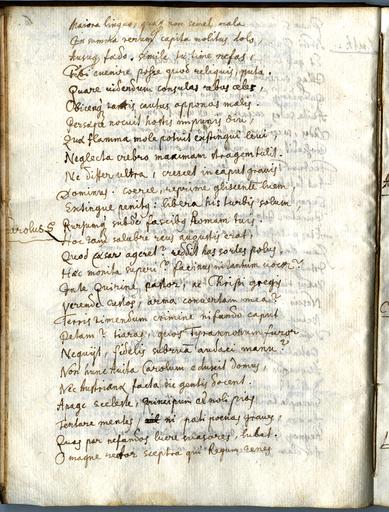 Maiora linquo, quae non semel mala
In multa rerum capita molitus dolo,
Ausus fando, simile tu time nefas,
Tibi evenire posse quod reliquis, puta.
Quare videndum consulas rebus celes.
Obicemque cautus apponas malis.
persaepe nocuit hostis impunis diu,
Qua flamma mole potuit extingui levi,
Neglecta crebro maximam stragem tulit.
Ne differ ultra, crescet in caput gravis
Dominus, coerce, reprime gliscentem luem
Extingue penitus: libera his turbis solum
Rursumque subde fascibus Romam tuis.
Carolus 5
Hoc tam salubre reis augustis erat,
Quod Caesar ageret? reddit has sortes polus
Haec monita superi? facinus mandant
Inte Quirine, pastor, ac Christi gregis
Verende custos, arma convertam mea?
Terris timendum crimine nefando caput
Petam? tiaras, quos Tyrannorum furor
Nequit, fidelis subruam audaci manu?
Non hunc Avita Carolum eduxit domus,
Nec Austriana facta die gentis docent.
Aeneae sceleste, principum et moli pias
Tentare mentes, ni pati poenas graves,
Quas par nefandos luere suasores, lubet.
O magne rector sceptra qui Regum tenes